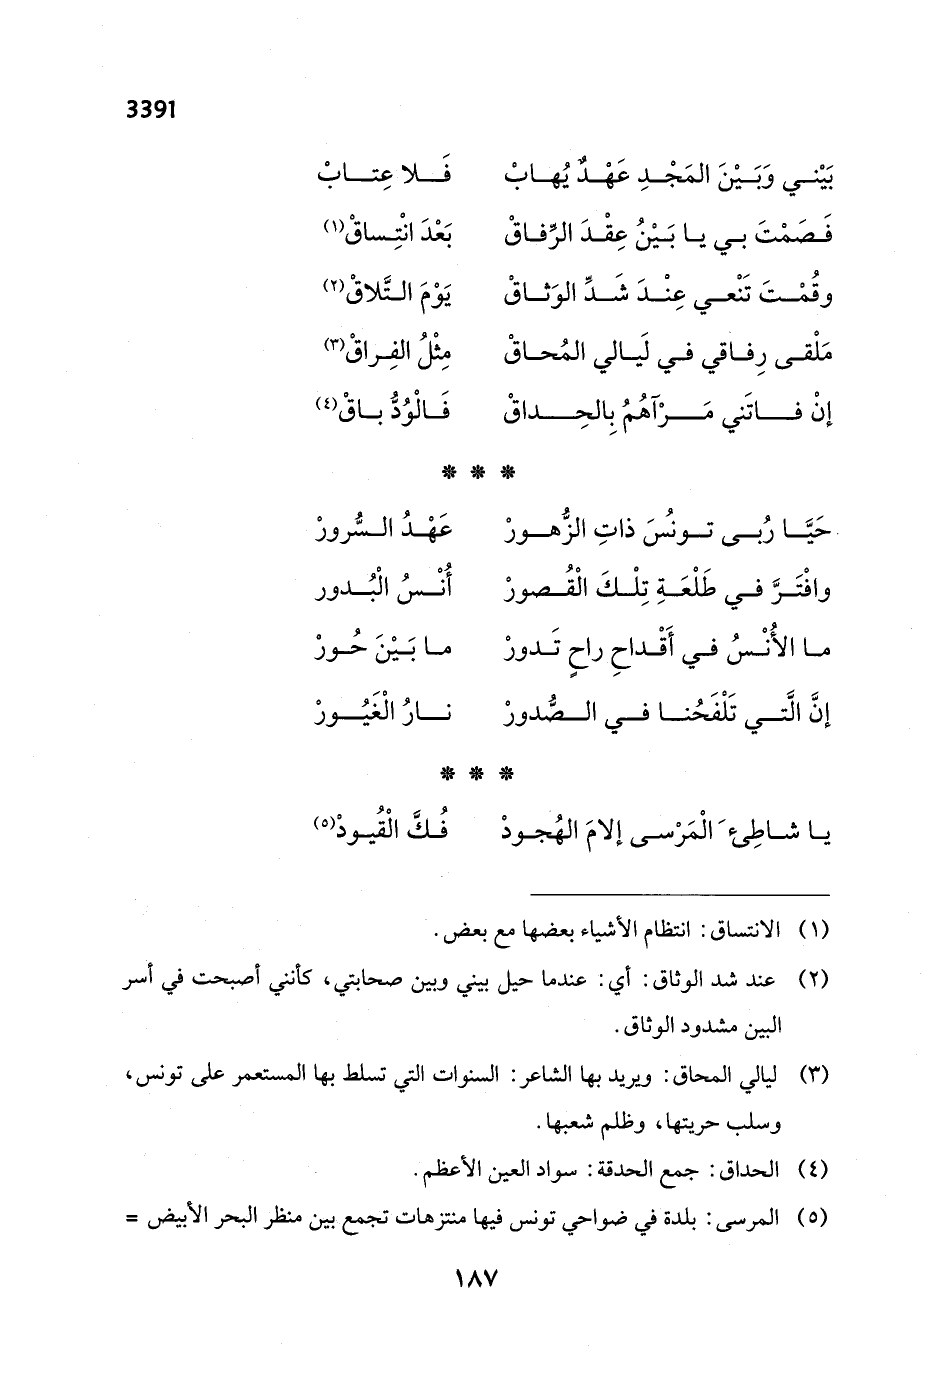 3391
بَيْني وَبَيْنَ المَجْدِ عَهْدٌ يُهابْ فَلا عِتابْ
فَصَمْتَ بي يا بَيْنُ عِقْدَ الرِّفاقْ بَعْدَ انْتِساقْ(١)
وقُمْتَ تَنْعي عِنْدَ شَدِّ الوَثاقْ يَوْمَ التَّلاقْ(٢)
مَلْقى رِفاقي في لَيالي المُحاقْ مِثْلُ الفِراقْ(٣)
إنْ فاتَني مَرْآهُمُ بِالحِداقْ فَالْوُدُّ باقْ(٤)
* * *
حَيَّا رُبى تونُسَ ذاتِ الزُّهورْ عَهْدُ السُّرورْ
وافْتَرَّ في طَلْعَةِ تِلْكَ الْقُصورْ أُنْسُ الْبُدور
ما الأُنْسُ في أَقْداحِ راحٍ تَدورْ ما بَيْنَ حُورْ
إنَّ الَّتي تَلْفَحُنا في الصُّدورْ نارُ الْغَيُورْ
* * *
يا شاطِئَ الْمَرْسى إلامَ الهُجودْ فُكَّ الْقُيودْ(٥)
(١) الانتساق: انتظام الأشياء بعضها مع بعض.
(٢) عند شد الوثاق: أي: عندما حيل بيني وبين صحابتي، كأنني أصبحت في أسر
البين مشدود الوثاق.
(٣) ليالي المحاق: ويريد بها الشاعر: السنوات التي تسلط بها المستعمر على تونس،
وسلب حريتها، وظلم شعبها.
(٤) الحداق: جمع الحدقة: سواد العين الأعظم.
(٥) المرسى: بلدة في ضواحي تونس فيها منتزهات تجمع بين منظر البحر الأبيض =
١٨٧